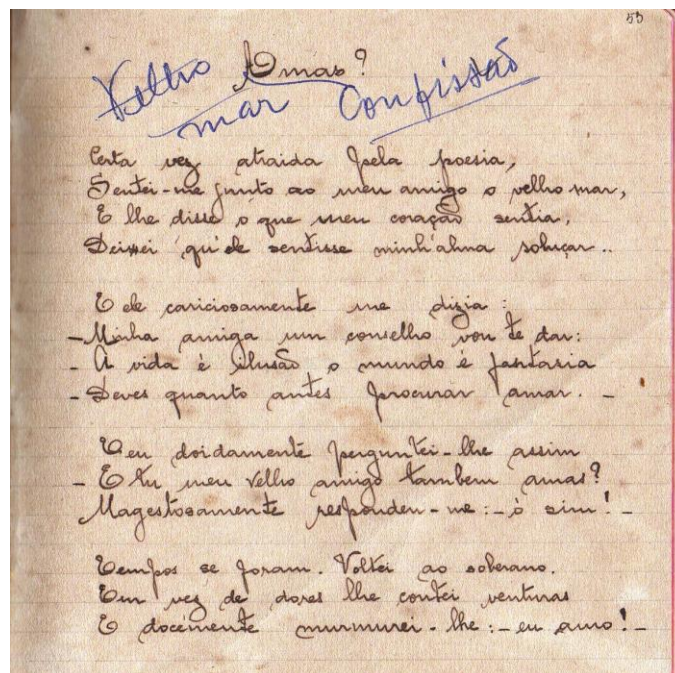 53
Amas?
Velho
mar Confissão
Certa vez atraida pela poesia,
Sentei-me junto ao meu amigo o velho mar,
E lhe disse o que meu coração sentia,
Deixei qu'ele sentisse minh'alma soluçar..
E ele cariciosamente me dizia:
- Minha amiga um conselho vou te dar:
- A vida é ilusão o mundo é fantasia
- Deves quanto antes procurar amar. -
E eu doidamente perguntei-lhe assim
- E tu meu velho amigo tambem amas?
Magestosamente respondeu-me:- ó sim! -
Tempos se foram. Voltei ao soberano.
Em vez de dores lhe contei venturas
E docemente murmurei-lhe:- eu amo! -